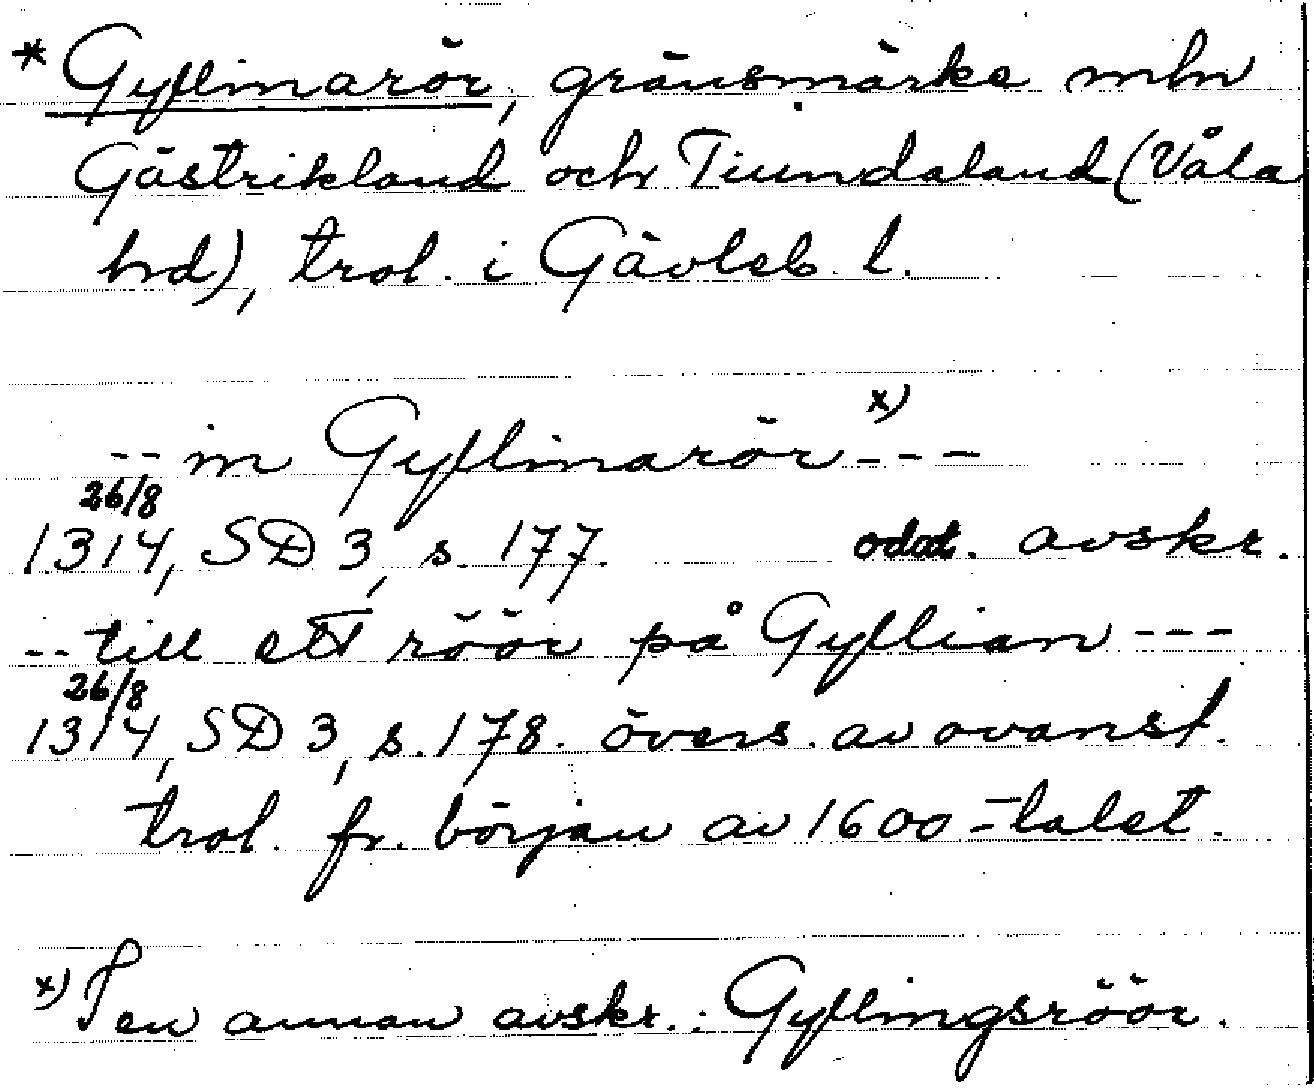 * Gyflinarör, gränsmärke mln
Gästrikland och Tiundaland (Våla
hd), trol. i Gävleb. l.
-- in Gyflinarör x) ---
26/8
1314, SD 3, s. 177. odat. avskr.
-- till ett röör på Gyflian ---
26/8
1314, SD 3, s. 178. övers. av ovanst.
trol. fr. början av 1600-talet.
x) I en annan avskr.: Gyflingsröör.